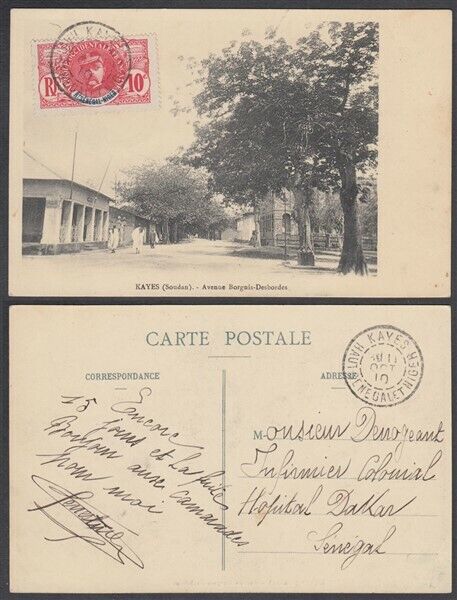 KAYES
HAUT SENEGAL-NIGER
AFRIQUE OCCIDENTALE FRANÇAISE
RF
10c
KAYES (Soudan). - Avenue Borgnis-Desbordes
CARTE POSTALE
KAYES
11
OCT
10
HAUT-SENEGAL ET NIGER
CORRESPONDANCE
ADRESSE
Encore
15 jours et la fuite
Bonjour aux camarades
M
Monsieur
Infirmier Colonial
Hôpital Dakar
Senégal